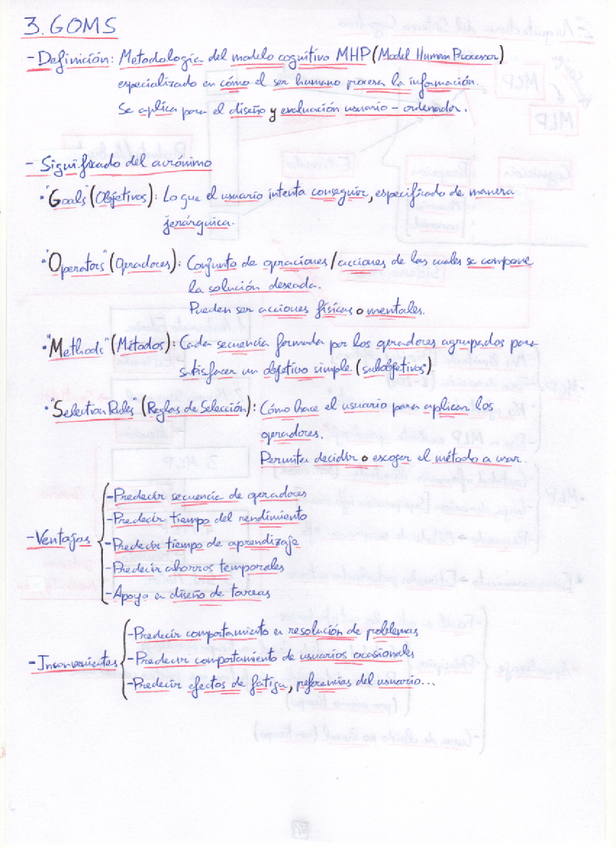 3. GOMS
- Definición: Metodología del modelo cognitivo MHP (Model Human Processor)
especializado en cómo el ser humano procesa la información.
Se aplica para el diseño y evaluación usuario - ordenador.
- Significado del acrónimo
• "Goals" (Objetivos): Lo que el usuario intenta conseguir, especificado de manera
jerárquica.
• "Operators" (Operadores): Conjunto de operaciones/acciones de las cuales se compone
la solución deseada.
Pueden ser acciones físicas o mentales.
• "Methods" (Métodos): Cada secuencia formada por los operadores agrupados para
satisfacer un objetivo simple (subobjetivos)
• "Selection Rules" (Reglas de Selección): Cómo hace el usuario para aplicar los
operadores.
Permiten decidir o escoger el método a usar.
- Ventajas
- Predecir secuencia de operadores
- Predecir tiempo del rendimiento
- Predecir tiempo de aprendizaje
- Predecir ahorros temporales
- Apoyo en diseño de tareas
- Inconvenientes
- Predecir comportamiento en resolución de problemas
- Predecir comportamiento de usuarios ocasionales
- Predecir efectos de fatiga, preferencias del usuario...